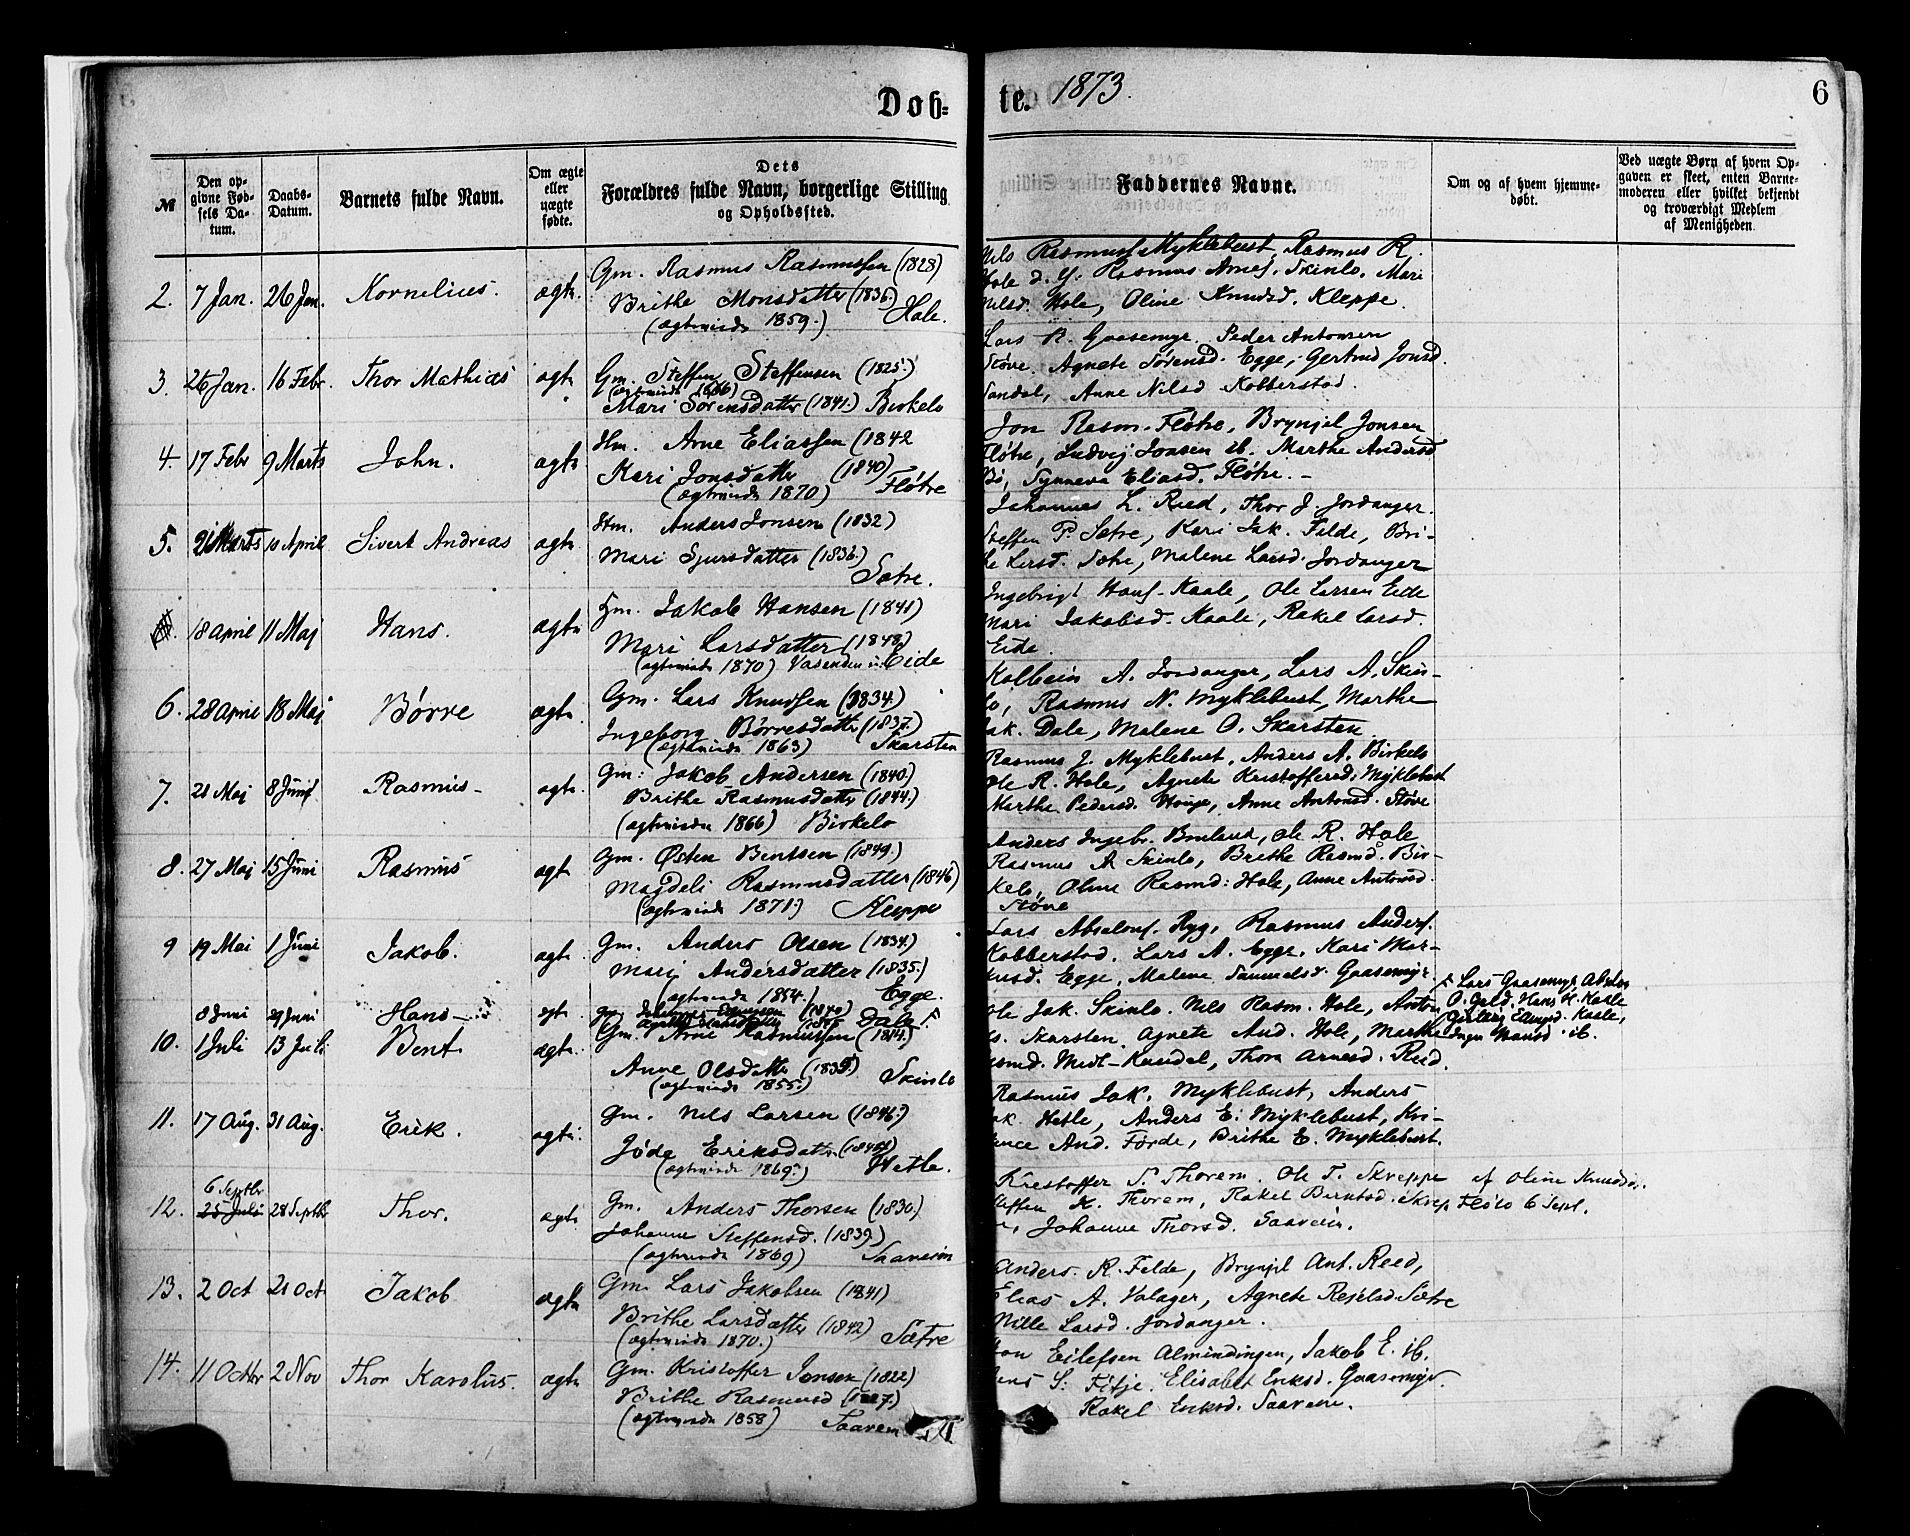 Døb-
te. 1873.
6
№
Den op-
givne Fød-
sels Da-
tum.
Daabs-
Datum.
Barnets fulde Navn.
Om ægte
eller
uægte
fødte.
Dets
Forældres fulde Navn, borgerlige Stilling
og Opholdssted.
Faddernes Navne.
Om og af hvem hjemme-
døbt.
Ved uægte Børn af hvem Op-
gaven er skeet, enten Barne-
moderen eller hvilket bekjendt
og troværdigt Medlem
af Menigheden.
2. 7 Jan. 26 Jan. Kornelius. ægte
Gm. Rasmus Rasmussen (1828)
Brithe Monsdatter (1836.)
(ægtevirde 1859.) Hole.
Nils Rasmuss. Myklebust, Rasmus R.
Hole d. Y. Rasmus Arnes. Skinlo, Mari
Nilsd. Hole, Oline Knudsd. Kleppe.
3. 26 Jan. 16 Febr Thor Mathias ægte
Gm. Steffen Steffensen (1825.)
(ægtevirde 1866)
Mari Sørensdatter (1841.) Birkelo
Lars R. Gaasemyr. Peder Antonsen
Støve. Agnete Sørensd. Egge, Gertrud Jonsd.
Sandal, Anne Nilsd Kobberstad.
4. 17 Febr 9 Marts John. ægte
Hm. Arne Eliassen (1842
Kari Jonsdatter (1840)
(ægtevirde 1870) Fløtre
Jon Rasm. Fløtre, Brynjel Jonsen
Fløtre, Ludvig Jonsen ib. Marthe Andersd
Bø, Synneva Eliasd. Fløtre.-
5. 21 Marts 10 April Sivert Andreas ægte
Hm. Anders Jonsen (1832)
Mari Sjursdatter (1836.)
Sætre.
Johannes L. Reed, Thor J. Jordanger.
Steffen P. Sætre, Kari Jak. Felde, Bri-
the Larsd. Sætre, Malene Larsd. Jordanger
18 April 11 Maj Hans. ægte
Hm. Jakob Hansen (1841)
Mari Larsdatter (1848)
(ægtevirde 1870) Vasenden u. Eide
Ingebrigt Hans. Kaale, Ole Larsen Eide
Mari Jakobsd. Kaale, Rakel Larsd.
Eide.
6. 28 April 18 Maj Børre ægte
Gm. Lars Knudsen (1834.)
Ingeborg Børresdatter (1837.)
(ægtevirde 1863) Skarsten
Kolbein A. Jordanger, Lars A. Skin-
lo, Rasmus N. Myklebust, Marthe
Jak. Dale, Malene O. Skarsten
7. 21 Maj 8 Juni Rasmus- ægte
Gm. Jakob Andersen (1840.)
Brithe Rasmusdatter (1844.)
(ægtevirde 1866) Birkelo
Rasmus J. Myklebust, Anders A. Birkelo
Ole R. Hole, Agnete Kristoffersd. Myklebust
Marthe Pedersd. Houge, Anne Antonsd. Støve
8. 27 Maj 15 Juni Rasmus ægte
Gm. Østen Bentsen (1849.)
Magdeli Rasmusdatter (1846)
(ægtevirde 1871.) Kleppe
Anders Ingebr. Breland, Ole R. Hole
Rasmus A Skinlo, Brithe Rasmd. Bir-
kelo, Oline Rasmd. Hole, Anne Antonsd.
Støve
9 19 Mai 1 Juni Jakob. ægte
Gm. Anders Olsen (1834.)
Mari Andersdatter (1835.)
(ægtevirde 1854.) Egge.
Lars Absalons. Ryg, Rasmus Anders.
Kobberstad. Lars A. Egge, Kari Mar-
kusd. Egge, Malene Samuelsd. Gaasemyr.
8 Juni 29 Juni Hans- ægt.
(1840)
Dale
Lars Gaasemyr, Absalon
O. Gjeld, Hans H. Kaale
Kaale,
ib.
10. 1 Juli 13 Juli Bent ægte.
Gm. Arne Rasmussen (1814.)
Anne Olsdatter (1835)
(ægtevirde 1855.) Skinlo
Ole Jak. Skinlo. Nils Rasm. Hole, Anton
Skarsten. Agnete And. Hole, Marthe
Rasmd. Midt-Kandal, Thora Arnesd. Reed.
11. 17 Aug. 31 Aug. Erik. ægte.
Gm. Nils Larsen (1846.)
Jøde Eriksdatter
(ægtevirde 1869.) Hetle.
Rasmus Jak. Myklebust, Anders
Jak. Hetle, Anders E. Myklebust, Kri-
And. Førde, Brithe E. Myklebust.
12. 6 Septbr 28 Septbr Thor. ægte
25 Juli
Gm. Anders Thorsen (1830.)
Johanne Steffensd. (1839.)
(ægtevirde 1869) Saaveim
Kristoffer S. Thorem. Ole T. Skreppe
Steffen K. Thorem, Rakel Berntsd. Skrep
Johanne Thorsd. Saaveim.
af Oline Knudsd.
Fløto 6 Sept.
13. 2 Oct 21 Oct Jakob ægte
Gm. Lars Jakobsen (1841)
Brithe Larsdatter (1842)
(ægtevirde 1870.) Sætre
Anders R. Felde, Brynjel Ant. Reed,
Elias A. Valager, Agnete Sætre
Nille Larsd. Jordanger.
14. 11 Octbr 2 Nov Thor Karolus. ægte
Gm. Kristoffer Jonsen (1822)
Brithe Rasmusd (1827.)
(ægtevirde 1858) Saaveim
Eilefsen Almindingen, Jakob E. ib.
Jens S. Fitje. Elisabet Eriksd. Gaasemyr.
Rakel Eriksd. Saaveim.